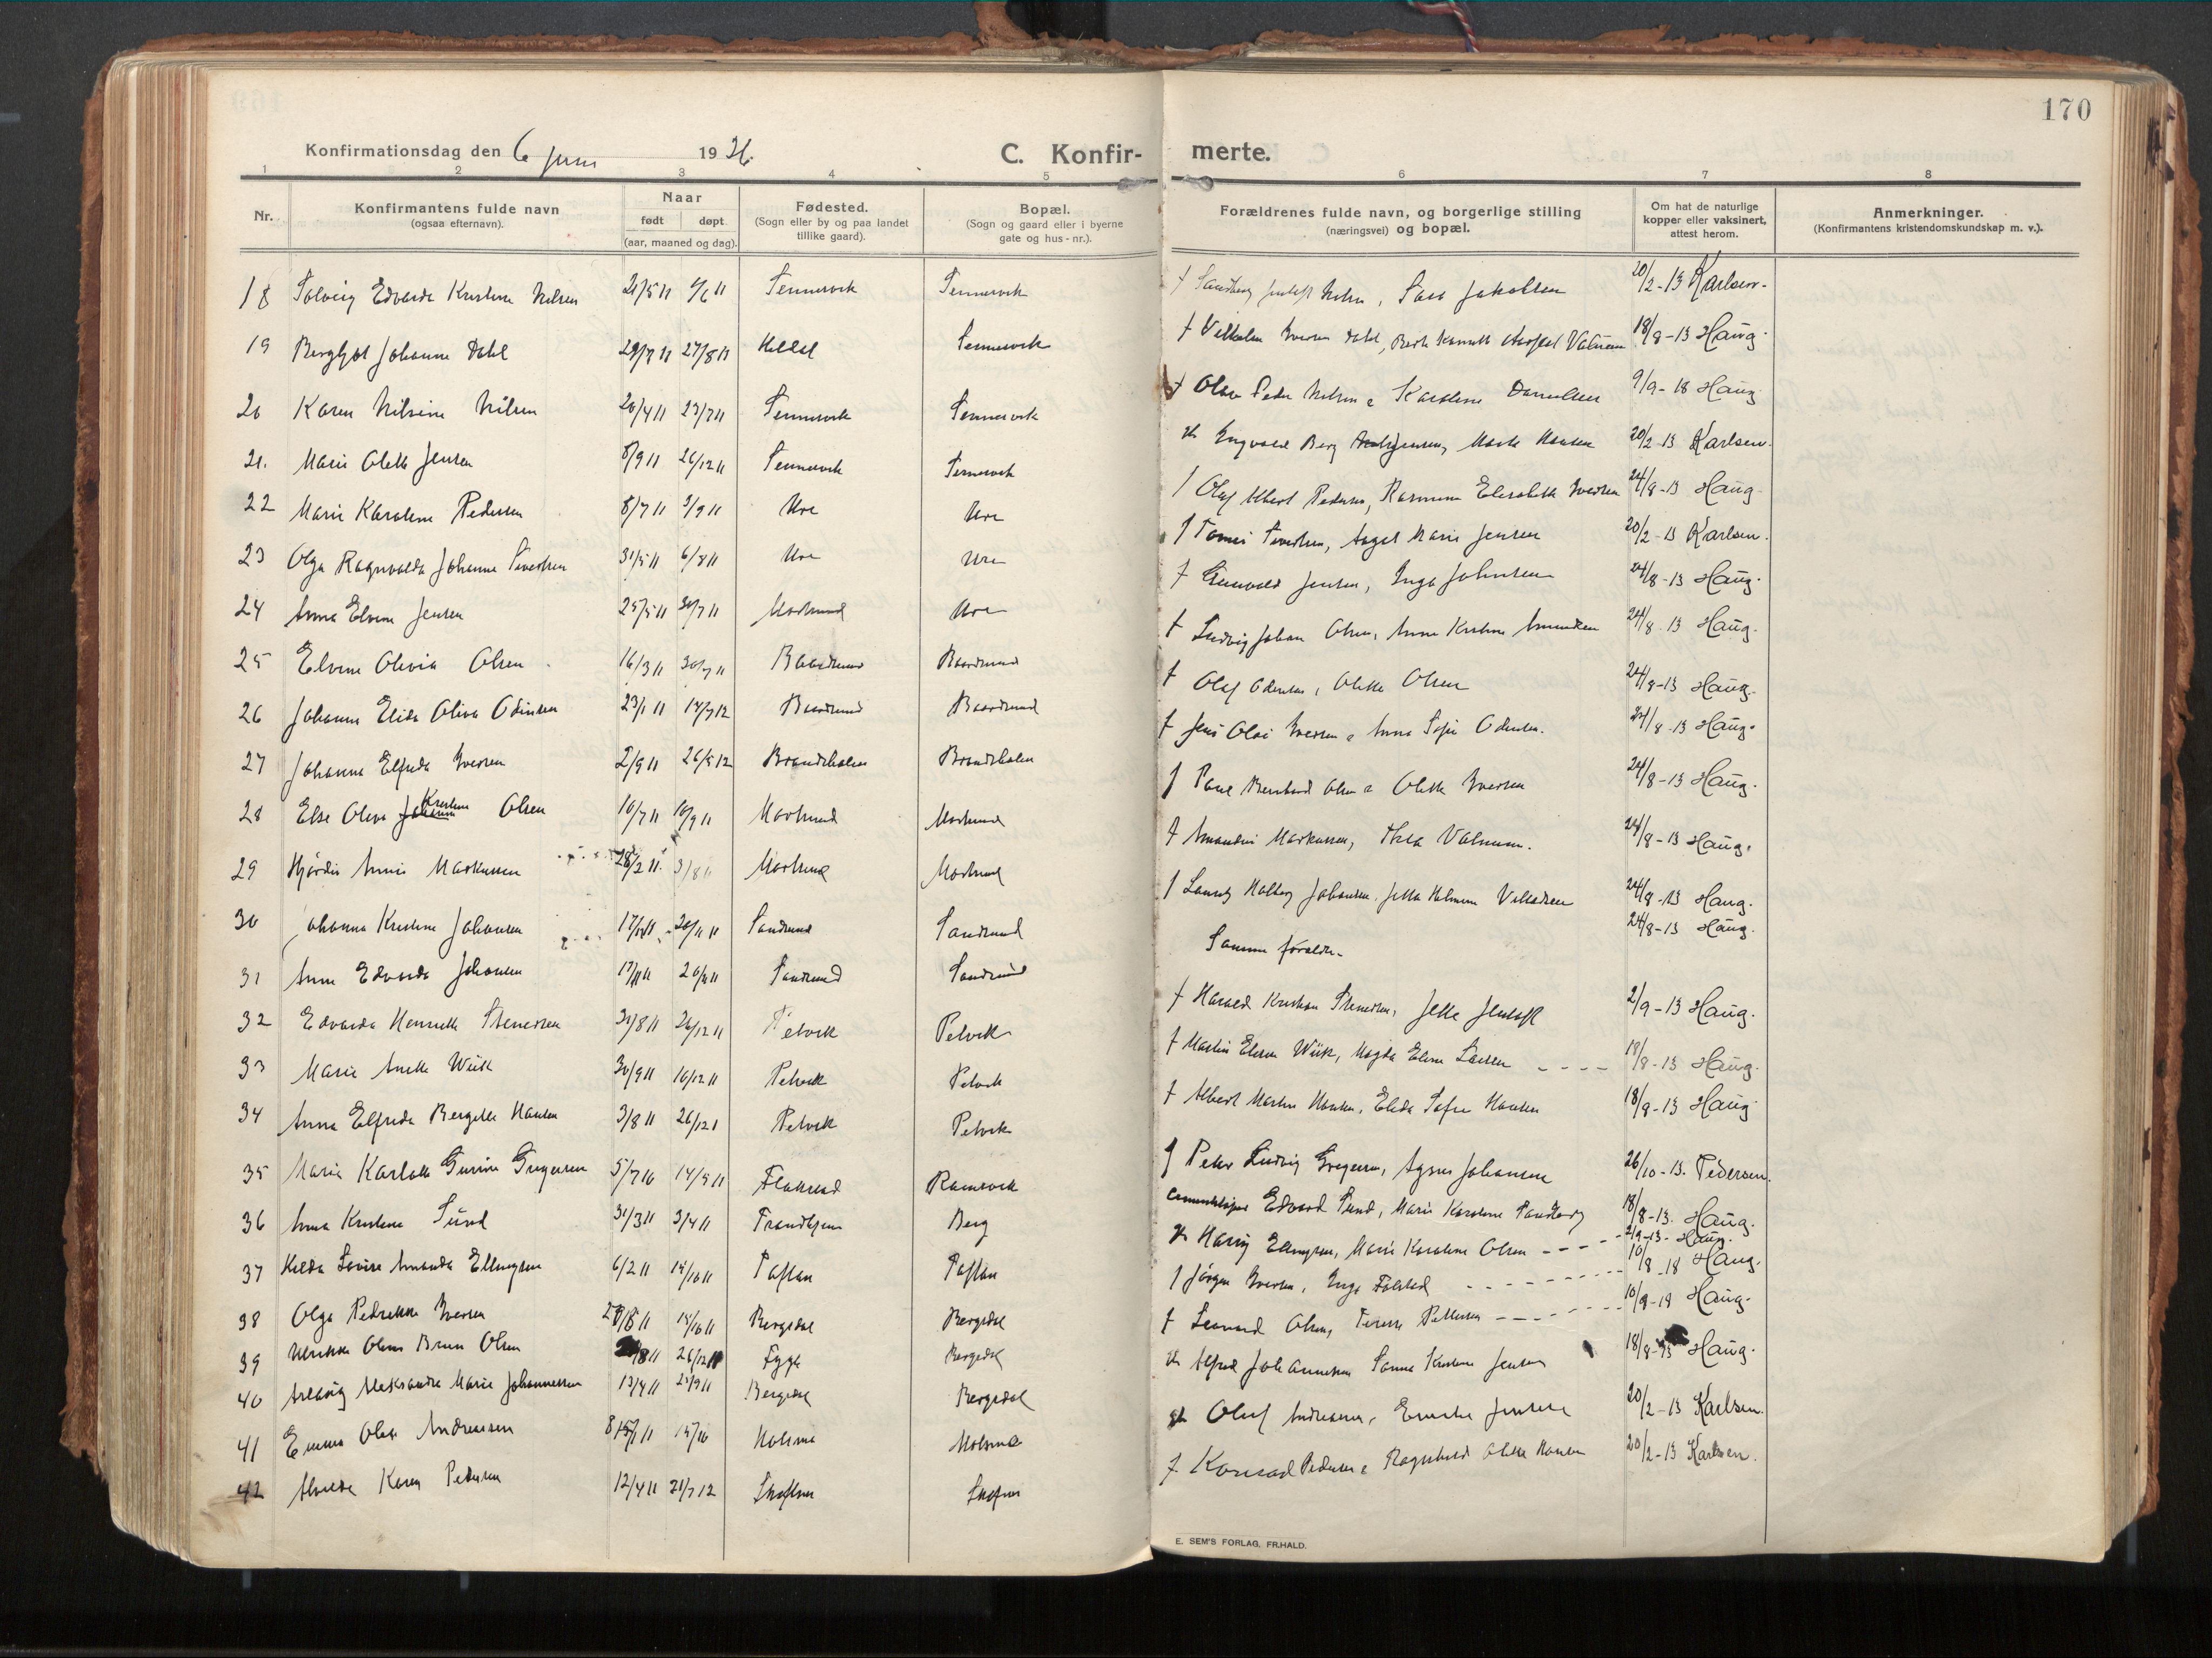 170
Konfirmationsdag den 6 juni 1926. C. Konfir- merte.
1 2 3 4 5 6 7 8
Nr. Konfirmantens fulde navn (ogsaa efternavn). Naar født døpt (aar, maaned og dag). Fødested. (Sogn eller by og paa landet tillike gaard). Bopæl. (Sogn og gaard eller i byerne gate og hus-nr.). Forældrenes fulde navn, og borgerlige stilling (næringsvei) og bopæl. Om hat de naturlige kopper eller vaksinert, attest herom. Anmerkninger. (Konfirmantens kristendomskundskap m. v.).
18 Solveig Edvarda Kristine Nilsen 21/5 11 Sennesvik Sennesvik f Sandberg Jentoft Nilsen, Sara Jakobsen 20/2-13 Karlsen.
19 Bergljot Johanne Dahl 29/7 11 27/8 11 Sennesvik f Vilhelm Iversen Dahl, 18/8-13 Haug.
20 Karen Nilsine Nilsen 20/4 11 23/7 11 Sennesvik Sennesvik f Olav Peder Nilsen & Karoline Danielsen 9/9-18 Haug
21. Marie Olette Jensen 8/9 11 26/12 11 Sennesvik Sennesvik Ingvald Berg Jensen, Marte Hansen 20/2-13 Karlsen.
22 Marie Karoline Pedersen 8/7 11 3/9 11 Ure Ure f Olaf Albert Pedersen, Rasmine Elisabeth Iversen 24/8-13 Haug.
23 Olga Ragnvalda Johanne Sivertsen 31/5 11 6/8 11 Ure Ure f Tomas Sivertsen, Aagot Marie Jensen 20/2-13 Karlsen.
24 Anna Elvine Jensen 25/5 11 30/7 11 Mortsund Ure f Grunvald Jensen, Inga Johnsen 24/8-13 Haug.
25 Elvine Olivia Olsen 16/3 11 30/7 11 Baardsund Baardsund f Ludvig Johan Olsen, Anne Kristine Amundsen 24/8-13 Haug.
26 Johanne Elida Oliva Odinsen 23/1 11 14/7 12 Baardsund Baardsund f Olaf Odinsen, Olette Olsen 24/8-13 Haug.
27 Johanna Elfrida Iversen 2/9 11 26/5 12 Brandsholm Brandsholm f Jens Olai Iversen & Anna Sofie Odinsen. 24/8-13 Haug.
28 Else Oliva Johanne Kristine Olsen 10/7 11 10/9 11 Mortsund Mortsund f Paul Bernhard Olsen & Olette Iversen 24/8-13 Haug.
29 Hjørdis Annie Markussen 28/2 11. 3/8 11 Mortsund Mortsund f Amandus Markussen, Thea Valnum. 24/8-13 Haug.
30 Johanna Kristine Johansen 20/11 11 Sandsund Sandsund f Lauritz Halberg Johansen, Jetta Helmine Villadsen 24/8-13 Haug.
31 Anne Edvarda Johansen 17/11 11 Sandsund Sandsund Samme foreldre. 24/8-13 Haug.
32 Edvarda Henriette Stenersen 31/8 11 26/12 11 Petvik Petvik f Harald Kristian Stenersen, Jette Jentoft 2/9-13 Haug.
33 Marie Anette Wiik 30/9 11 10/12 11 Petvik Petvik f Martin Wiik, Magda Eline Larsen ---- 18/8-13 Haug.
34 Anna Elfrida Bergitte Hansen 3/8 11 26/12 1 Petvik Petvik f Albert Martin Hansen, Elida Sofie Hansen 18/8-13 Haug
35 Marie Karlotte Gurine Gregersen 5/7 10 14/5 11 Flakstad Ramsvik f Peter Ludvig Gregersen, Agnes Johansen 26/10-13. Pedersen.
36 Anna Kristine Sund 31/3 11 3/4 11 Trondhjem Berg Edvard Sund, Marie Karoline Sandberg 18/8-13. Haug.
37 Hilda Lovise Amanda Ellingsen 6/2 11 15/10 11 Paftan Paftan Harry Ellingsen, Marie Karoline Olsen ---- 2/9-13- Haug.
38 Olga Pedrikke Iversen 15/10 11 Bergsdal Bergsdal f Jørgen Iversen, Inga Falstad -------- 10/8-18 Haug.
39 Ulrikke Olum Brun Olsen 26/12 11 Fygle Bergsdal f Leonard Olsen, Terese Pettersen ---- 10/9-18 Haug.
40 Aslaug Aleksandra Marie Johannessen 13/4 11 Bergsdal Bergsdal Alfred Johannessen Sanna Kristine Jensen 18/8-13 Haug.
41 Emma Olise Andreassen 15/10 Holsmo Holsmo Oluf Andreassen, Emilie Jensen 20/2-13 Karlsen.
42 Alvilda Karen Pedersen 12/4 11 21/7 12 Skotnes f Konrad Pedersen & Ragnhild Olette Hansen 20/2-13 Karlsen.
E. SEM'S FORLAG, FR.HALD.